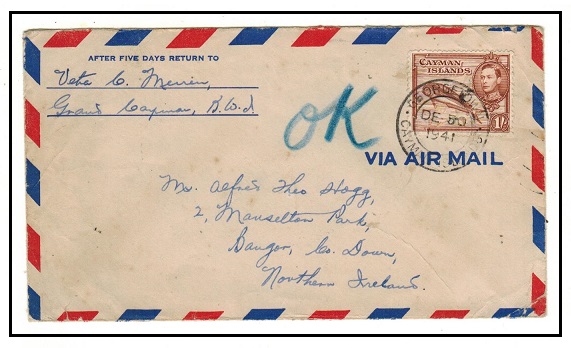 AFTER FIVE DAYS RETURN TO
Veta C. Merren,
Grand Cayman, B.W.I
CAYMAN
ISLANDS
1/-
GEORGETOWN
DE 30
1941
CAYMAN
OK
VIA AIR MAIL
Mr. Alfred Theo Hogg,
2, Manselton Park,
Bangor, Co. Down,
Northern Ireland.